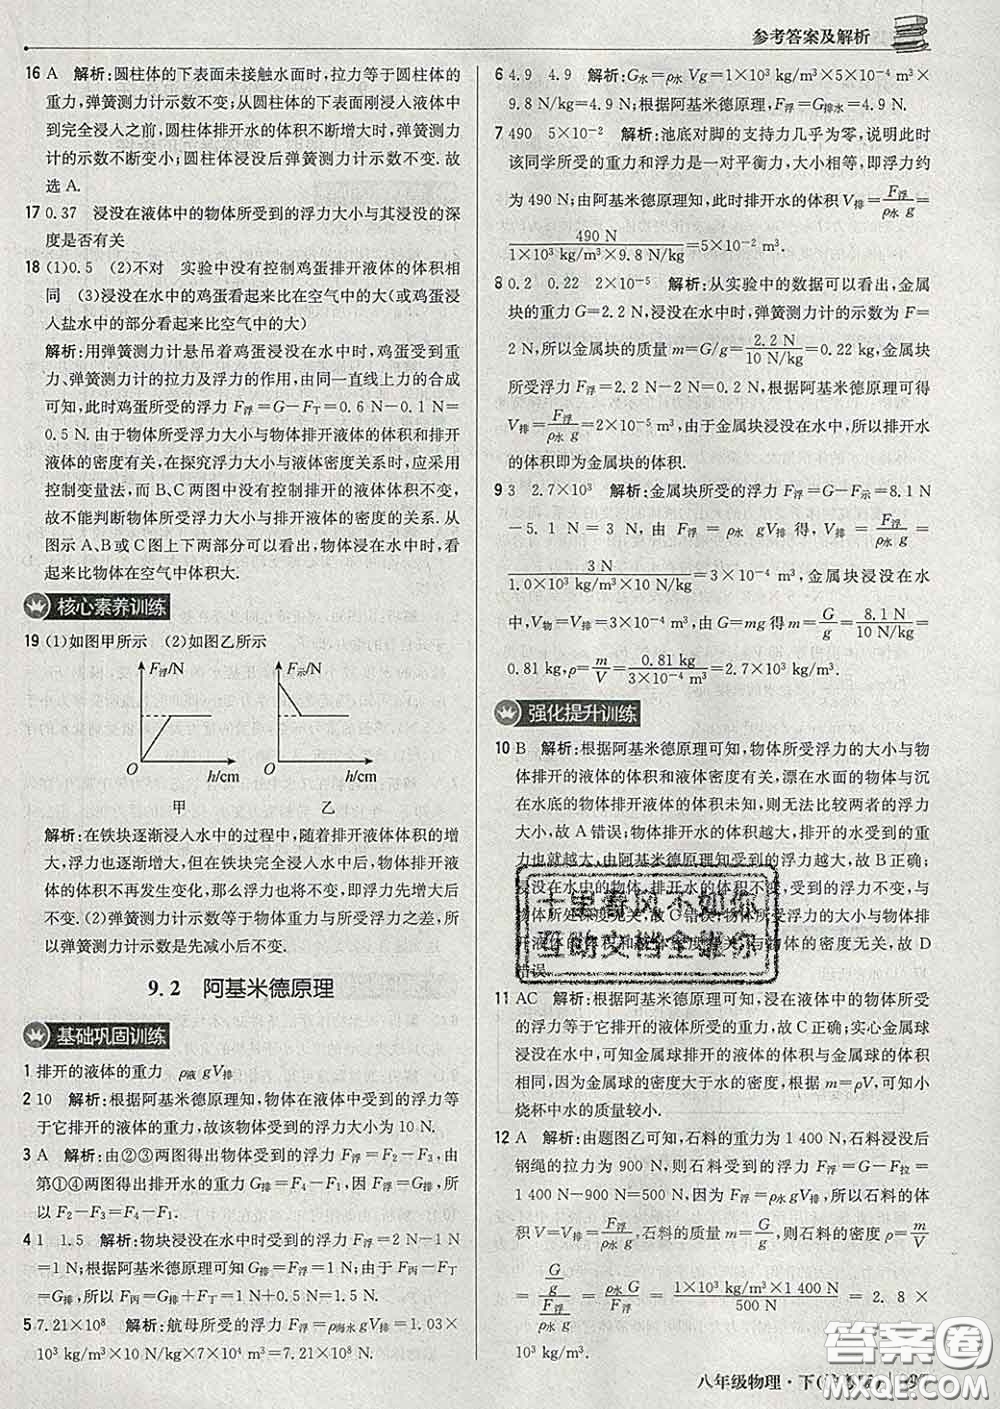 参考答案及解析
16 A 解析:圆柱体的下表面未接触水面时,拉力等于圆柱体的
重力,弹簧测力计示数不变;从圆柱体的下表面刚浸入液体中
到完全浸入之前,圆柱体排开水的体积不断增大时,弹簧测力
计的示数不断变小;圆柱体浸没后弹簧测力计示数不变.故
选 A.
17 0.37 浸没在液体中的物体所受到的浮力大小与其浸没的深
度是否有关
18 (1)0.5 (2)不对 实验中没有控制鸡蛋排开液体的体积相
同 (3)浸没在水中的鸡蛋看起来比在空气中的大(或鸡蛋浸
入盐水中的部分看起来比空气中的大)
解析:用弹簧测力计悬吊着鸡蛋浸没在水中时,鸡蛋受到重
力、弹簧测力计的拉力及浮力的作用,由同一直线上力的合成
可知,此时鸡蛋所受的浮力 F浮=G−FT=0.6 N−0.1 N=
0.5 N.由于物体所受浮力大小与物体排开液体的体积和排开
液体的密度有关,在探究浮力大小与液体密度关系时,应采用
控制变量法,而 B、C 两图中没有控制排开的液体体积不变,
故不能判断物体所受浮力大小与排开液体的密度的关系.从
图示 A、B 或 C 图上下两部分可以看出,物体浸没在水中时,看
起来比物体在空气中体积大.
核心素养训练
19 (1)如图甲所示 (2)如图乙所示
F浮/N F示/N
O h/cm O h/cm
甲 乙
解析:在铁块逐渐浸入水中的过程中,随着排开液体体积的增
大,浮力也逐渐增大;但在铁块完全浸入水中后,排开液体的
体积不再发生变化,那么浮力也将不变,即浮力先增大后不
变.(2)弹簧测力计示数等于物体重力与所受浮力之差,所
以弹簧测力计示数是先减小后不变.
9.2 阿基米德原理
基础巩固训练
1 排开的液体的重力 ρ液 gV排
2 10 解析:根据阿基米德原理知,物体在液体中受到的浮力等
于它排开的液体的重力,故该物体受到的浮力大小为 10 N.
3 A 解析:由②③两图得出物体受到的浮力 F浮=F2−F3,由
第①④两图得出排开水的重力 G排=F4−F1,因 F浮=G排,所
以 F2−F3=F4−F1.
4 1 1.5 解析:物块浸没在水中时受到的浮力 F浮=2 N−1 N
=1 N;根据阿基米德原理可知 G排=F浮=1 N;由于 F丙−F丁
=G排,所以 F丙=G排+F丁=1 N+0.5 N=1.5 N.
5 7.21×10⁸ 解析:航母所受的浮力 F浮=ρ海水 gV排=1.03×
10³ kg/m³×10 N/kg×7×10⁴ m³=7.21×10⁸ N.
6 4.9 4.9 解析:G水=ρ水 Vg=1×10³ kg/m³×5×10⁻⁴ m³×
9.8 N/kg=4.9 N;根据阿基米德原理,F浮=G排水=4.9 N.
7 490 5×10⁻² 解析:池底对脚的支持力几乎为零,说明此时
该同学所受的重力和浮力是一对平衡力,大小相等,即浮力约
为 490 N;由阿基米德原理知,此时排开水的体积 V排=F浮/(ρ水 g)=
490 N/(1×10³ kg/m³×9.8 N/kg)=5×10⁻² m³.
8 0.2 0.22 2×10⁻⁵ 解析:从实验中的数据可以看出,金属
块的重力 G=2.2 N,浸没在水中时,弹簧测力计的示数为 F=
2 N,所以金属块的质量 m=G/g=2.2 N/(10 N/kg)=0.22 kg,金属块
所受浮力 F浮=2.2 N−2 N=0.2 N,根据阿基米德原理可得
V排=F浮/(ρ水 g)=2×10⁻⁵ m³,由于金属块浸没在水中,所以排开水
的体积即为金属块的体积.
9 3 2.7×10³ 解析:金属块所受的浮力 F浮=G−F示=8.1 N
−5.1 N=3 N,由 F浮=ρ水 gV排 得,V排=F浮/(ρ水 g)=
3 N/(1.0×10³ kg/m³×10 N/kg)=3×10⁻⁴ m³,金属块浸没在水
中,V物=V排=3×10⁻⁴ m³,由 G=mg 得 m=G/g=8.1 N/(10 N/kg)=
0.81 kg,ρ=m/V=0.81 kg/(3×10⁻⁴ m³)=2.7×10³ kg/m³.
强化提升训练
10 B 解析:根据阿基米德原理可知,物体所受浮力的大小与物
体排开的液体的体积和液体密度有关,漂在水面的物体与沉
在水底的物体排开液体的体积未知,则无法比较两者的浮力
大小,故 A 错误;物体排开水的体积越大,排开的水受到的重
力也就越大,由阿基米德原理知受到的浮力越大,故 B 正确;
浸没在水中的物体,排开水的体积不变,受到的浮力不变,与
物体所处深度无关,故 C 错误;物体受到的浮力的大小与排
开液体的体积和液体的密度有关,与物体的密度无关,故 D
错误.
11 AC 解析:根据阿基米德原理可知,浸在液体中的物体所受
的浮力等于它排开的液体所受的重力,故 C 正确;实心金属球
浸没在水中,可知金属球排开的液体的体积与金属球的体积
相同,因为金属球的密度大于水的密度,根据 m=ρV,可知小
烧杯中水的质量较小.
12 A 解析:由题图乙可知,石料的重力为 1 400 N,石料浸没后
钢绳的拉力为 900 N,则石料受到的浮力 F浮=G−F拉=
1 400 N−900 N=500 N,因为 F浮=ρ水 gV排,所以石料的体
积 V=V排=F浮/(ρ水 g),石料的质量 m=G/g,则石料的密度 ρ=m/V
=(G/g)/(F浮/(ρ水 g))=ρ水 G/F浮=(1×10³ kg/m³×1 400 N)/500 N=2.8×
10³ kg/m³.
十里春风不如你
互助文档全靠你
八年级物理·下
答案圈
MXQE.COM